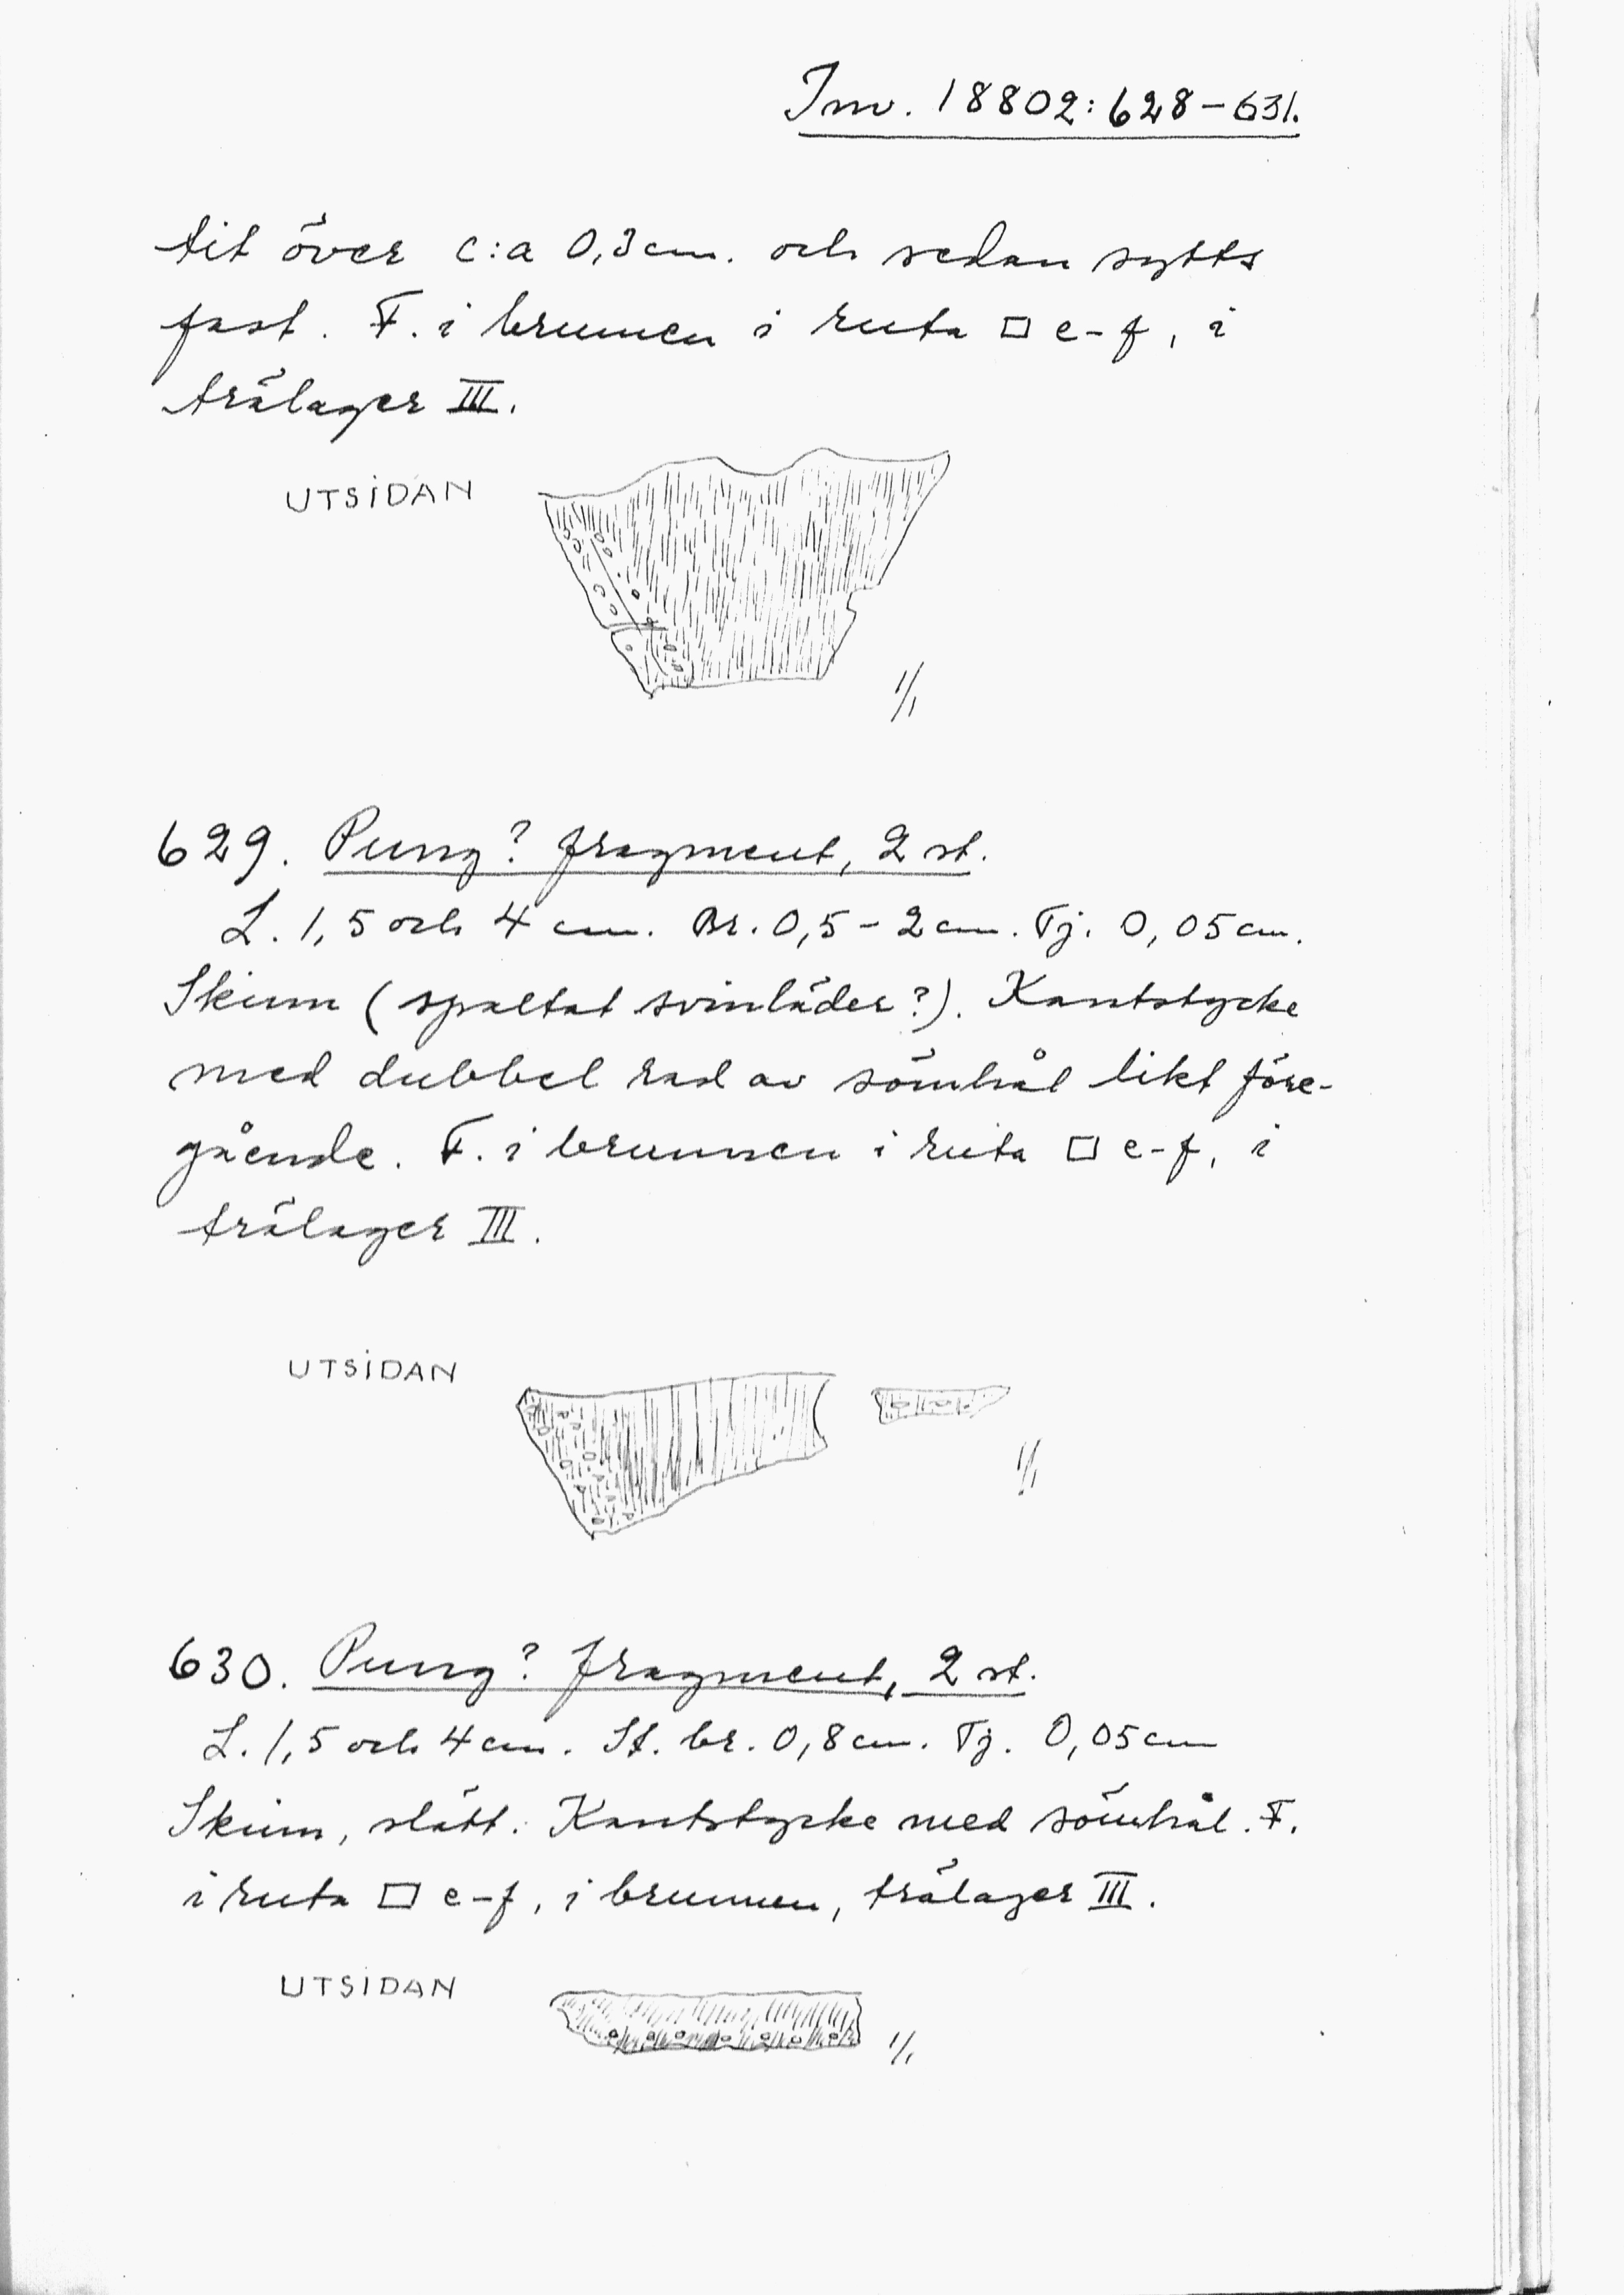 Inv. 18802:628-631.
tit över c:a 0,3 cm. och sedan sytts
fast. F. i brunnen i ruta □ e-f, i
trälager III.
UTSIDAN
1/1
629. Pung? fragment, 2 st.
L. 1,5 och 4 cm. Br. 0,5-2 cm. Tj. 0,05 cm.
Skinn (spaltat svinläder?). Kantstycke
med dubbel rad av sömhål likt före-
gående. F. i brunnen i ruta □ e-f, i
trälager III.
UTSIDAN
1/1
630. Pung? fragment, 2 st.
L. 1,5 och 4 cm. St. br. 0,8 cm. Tj. 0,05 cm
Skinn, slätt. Kantstycke med sömhål. F.
i ruta □ e-f, i brunnen, trälager III.
UTSIDAN
1/1